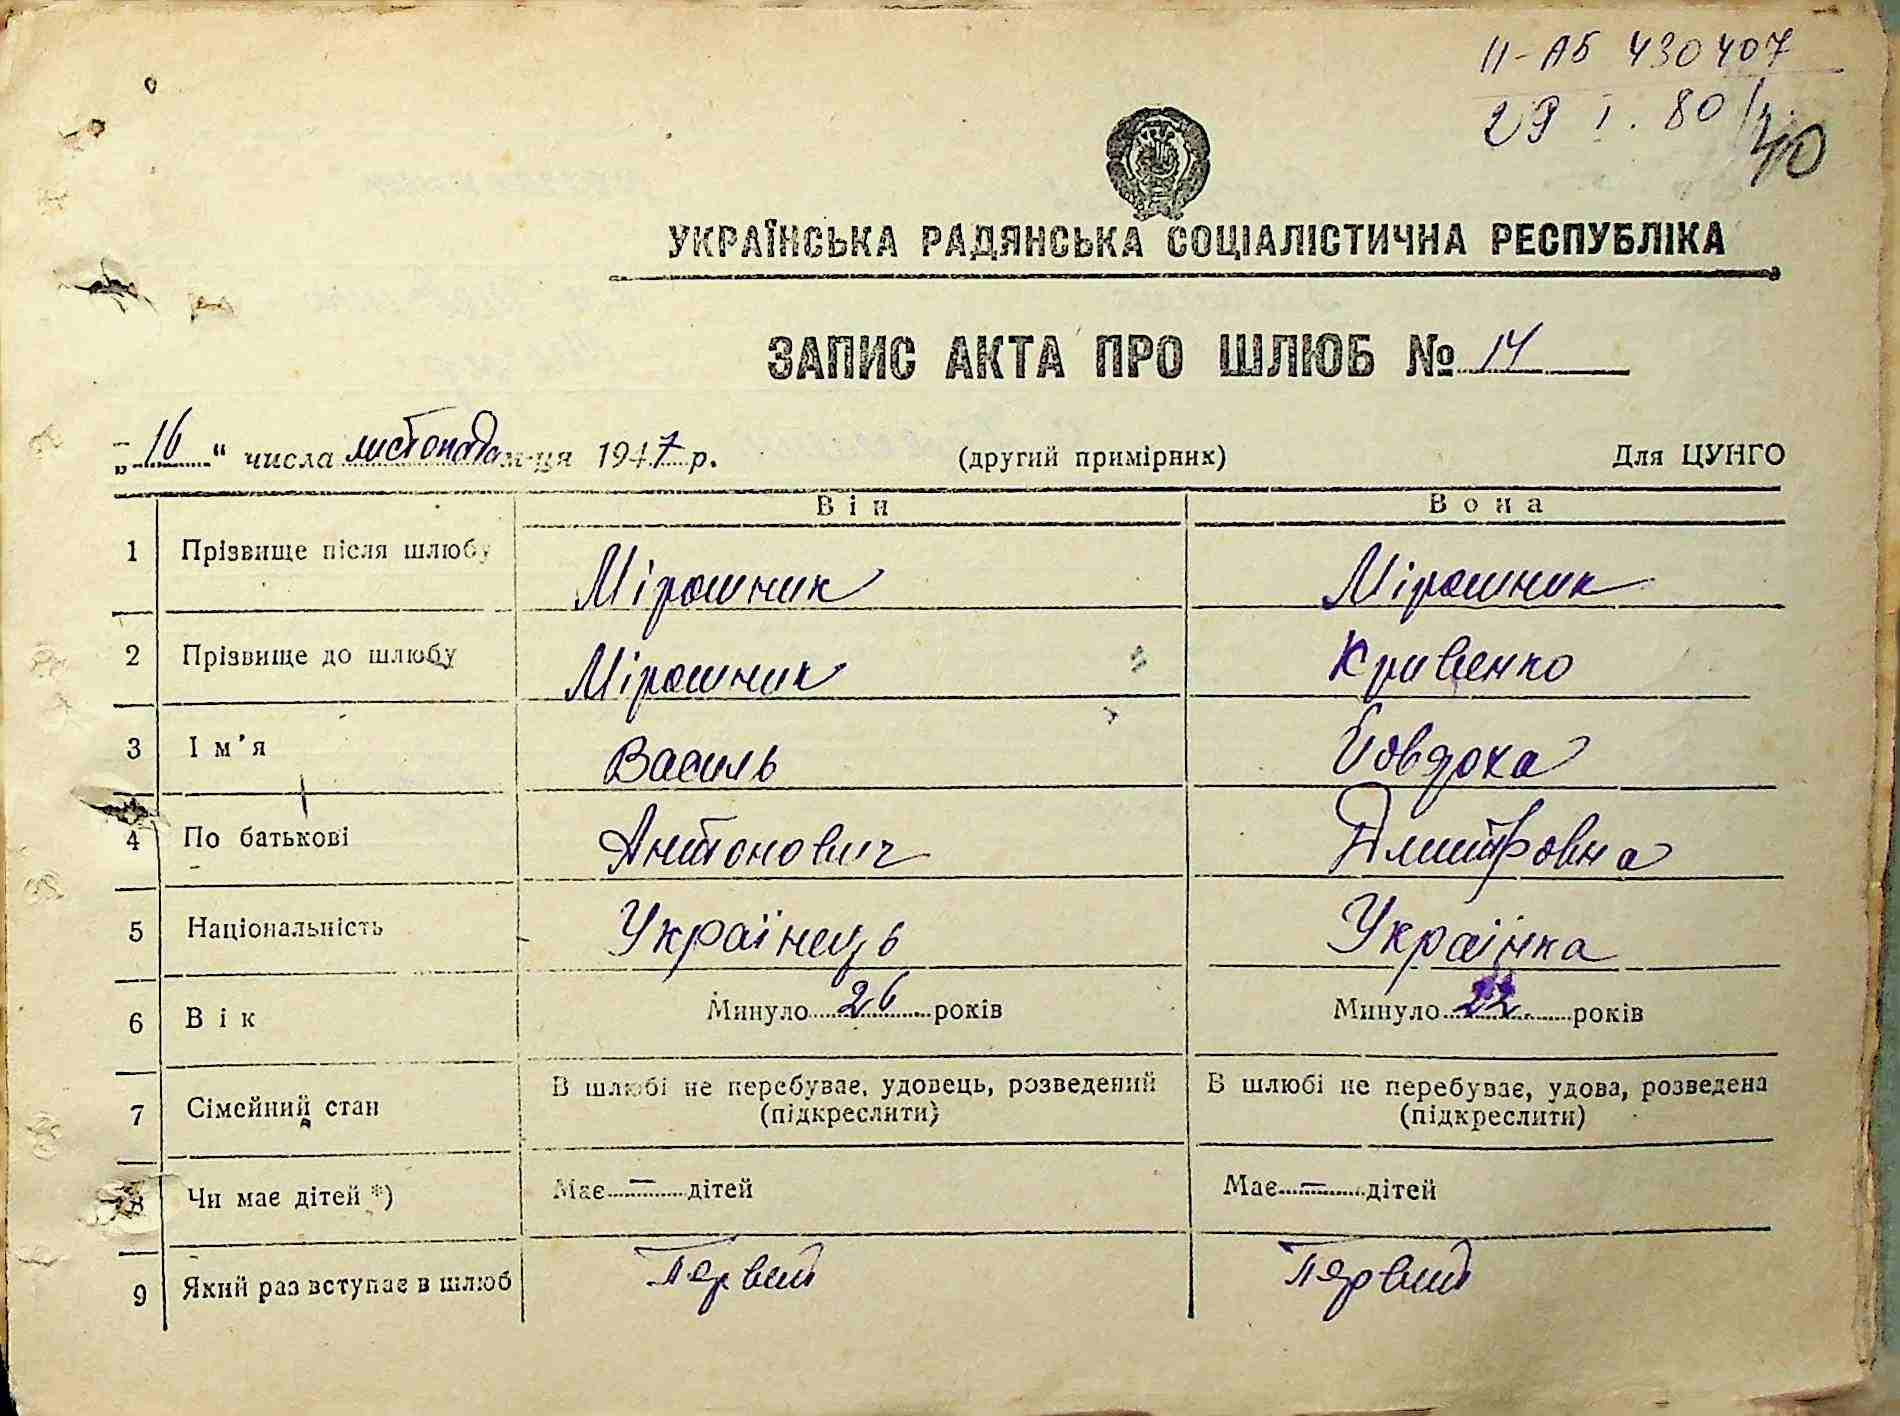 II-АБ 430407
29 I. 80
40
УКРАЇНСЬКА РАДЯНСЬКА СОЦІАЛІСТИЧНА РЕСПУБЛІКА
ЗАПИС АКТА ПРО ШЛЮБ № 14
„16“ числа листопада м-ця 1947 р. (другий примірник) Для ЦУНГО
Він Вона
1 Прізвище після шлюбу Мірошник Мірошник
2 Прізвище до шлюбу Мірошник Кривенко
3 Ім'я Василь Їовдоха
4 По батькові Антонович Дмитровна
5 Національність Українець Українка
6 Вік Минуло 26 років Минуло 22 років
7 Сімейний стан В шлюбі не перебуває, удовець, розведений В шлюбі не перебуває, удова, розведена
(підкреслити) (підкреслити)
8 Чи має дітей *) Має — дітей Має — дітей
9 Який раз вступає в шлюб Первий Первий